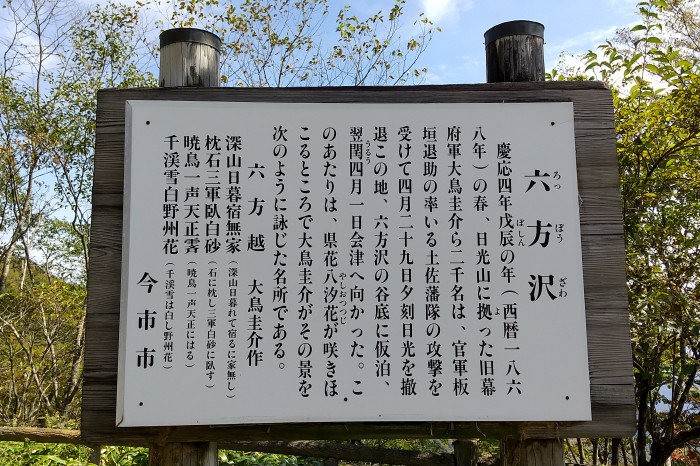 六方沢
ろっ ぽう ざわ
慶応四年戊辰の年（西暦一八六
ぼしん
八年）の春、日光山に拠った旧幕
よ
府軍大鳥圭介ら二千名は、官軍板
垣退助の率いる土佐藩隊の攻撃を
受けて四月二十九日夕刻日光を撤
退この地、六方沢の谷底に仮泊、
翌閏四月一日会津へ向かった。こ
うるう
のあたりは、県花八汐花が咲きほ
やしおつつじ
こるところで大鳥圭介がその景を
次のように詠じた名所である。
六方越 大鳥圭介作
深山日暮宿無家（深山日暮れて宿るに家無し）
枕石三軍臥白砂（石に枕し三軍白砂に臥す）
暁鳥一声天正霽（暁鳥一声天正にはる）
千渓雪白野州花（千渓雪は白し野州花）
今市市